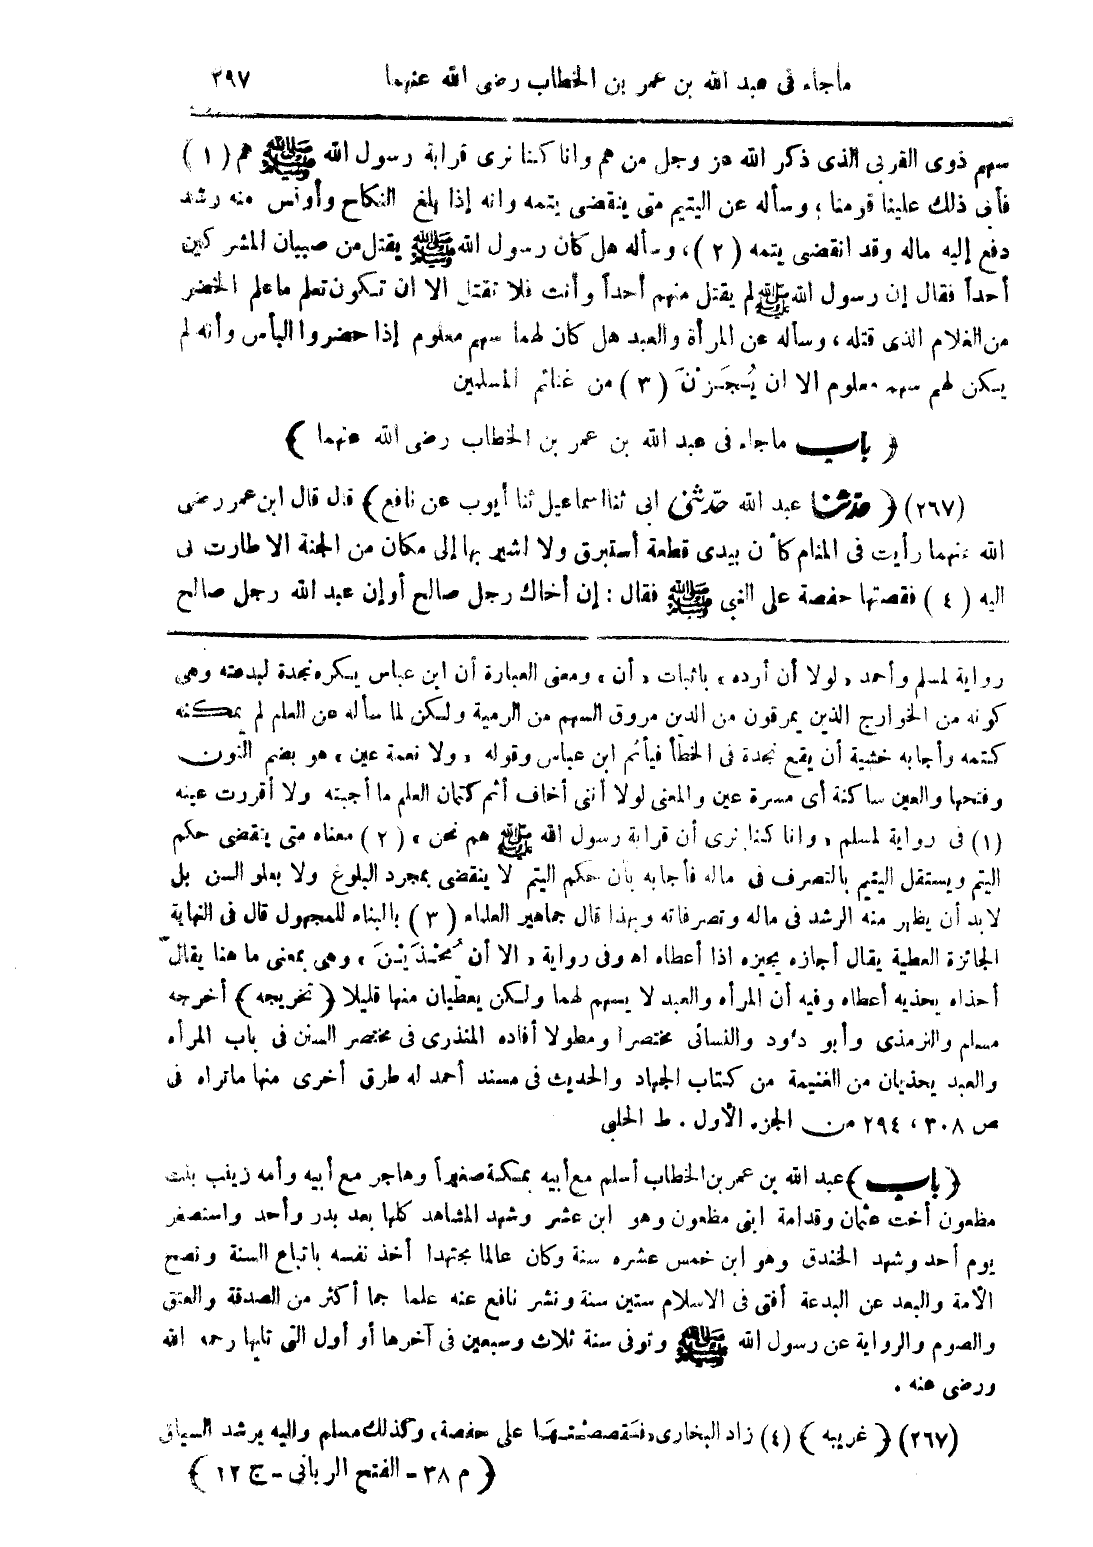 ماجاء فى عبد الله بن عمر بن الخطاب رضى الله عنهما ٢٩٧
سهم ذوى القربى الذى ذكر الله عز وجل من هم وانا كنا نرى قرابة رسول الله ﷺ هم (١)
فأبى ذلك علينا قومنا، وسأله عن اليتيم متى ينقضى يتمه وانه إذا بلغ النكاح وأونس منه رشد
دفع إليه ماله وقد انقضى يتمه (٢)، وسأله هل كان رسول الله ﷺ يقتل من صبيان المشركين
أحداً فقال إن رسول الله ﷺ لم يقتل منهم أحداً وأنت فلا تقتل الا ان تكون تعلم ماعلم الخضر
من الغلام الذى قتله، وسأله عن المرأة والعبد هل كان لهما سهم معلوم إذا حضروا البأس وأنه لم
يكن لهم سهم معلوم الا ان يُجَزْنَ (٣) من غنائم المسلمين
﴿ باب ماجاء فى عبد الله بن عمر بن الخطاب رضى الله عنهما ﴾
(٢٦٧) ﴿ حدثنا عبد الله حدّثنى ابى ثنا اسماعيل ثنا أيوب عن نافع ﴾ قال قال ابن عمر رضى
الله عنهما رأيت فى المنام كأن بيدى قطعة أستبرق ولا اشير بها إلى مكان من الجنة الا طارت بى
اليه (٤) فقصتها حفصة على النبى ﷺ فقال : إن أخاك رجل صالح أو إن عبد الله رجل صالح
رواية لمسلم وأحمد «لولا أن أرده» باثبات «أن» ومعنى العبارة أن ابن عباس يكره نجدة لبدعته وهى
كونه من الخوارج الذين يمرقون من الدين مروق السهم من الرمية ولكن لما سأله عن العلم لم يمكنه
كتمه وأجابه خشية أن يقع نجدة فى الخطأ فيأثم ابن عباس وقوله «ولا نعمة عين» هو بضم النون
وفتحها والعين ساكنة أى مسرة عين والمعنى لولا أننى أخاف أثم كتمان العلم ما أجبته ولا أقررت عينه
(١) فى رواية لمسلم «وانا كنا نرى أن قرابة رسول الله ﷺ هم نحن» (٢) معناه متى ينقضى حكم
اليتم ويستقل اليتيم بالتصرف فى ماله فأجابه بأن حكم اليتم لا ينقضى بمجرد البلوغ ولا بعلو السن بل
لابد أن يظهر منه الرشد فى ماله وتصرفاته وبهذا قال جماهير العلماء (٣) بالبناء للمجهول قال فى النهاية
الجائزة العطية يقال أجازه يجيزه اذا أعطاه اه وفى رواية «الا أن يُحْذَيْنَ» وهى بمعنى ما هنا يقال
أحذاه يحذيه أعطاه وفيه أن المرأه والعبد لا يسهم لهما ولكن يعطيان منها قليلا ﴿ تخريجه ﴾ أخرجه
مسلم والترمذى وأبو داود والنسائى مختصرا ومطولا أفاده المنذرى فى مختصر السنن فى باب المرأه
والعبد يحذيان من الغنيمة من كتاب الجهاد والحديث فى مسند أحمد له طرق أخرى منها ماتراه فى
ص ٣٠٨، ٢٩٤ من الجزء الأول . ط الحلبى
﴿ باب ﴾ عبد الله بن عمر بن الخطاب أسلم مع أبيه بمكة صغيراً وهاجر مع أبيه وأمه زينب بنت
مظعون أخت عثمان وقدامة ابنى مظعون وهو ابن عشر وشهد المشاهد كلها بعد بدر وأحد واستصغر
يوم أحد وشهد الخندق وهو ابن خمس عشره سنة وكان عالما مجتهدا أخذ نفسه باتباع السنة ونصح
الأمة والبعد عن البدعة أفتى فى الاسلام ستين سنة ونشر نافع عنه علما جما أكثر من الصدقة والعتق
والصوم والرواية عن رسول الله ﷺ وتوفى سنة ثلاث وسبعين فى آخرها أو أول التى تليها رحمه الله
ورضى عنه .
(٢٦٧) ﴿ غريبه ﴾ (٤) زاد البخارى «فقصصتها على حفصة» وكذلك مسلم واليه يرشد السياق
﴿ م ٣٨ - الفتح الربانى - ج ١٢ ﴾